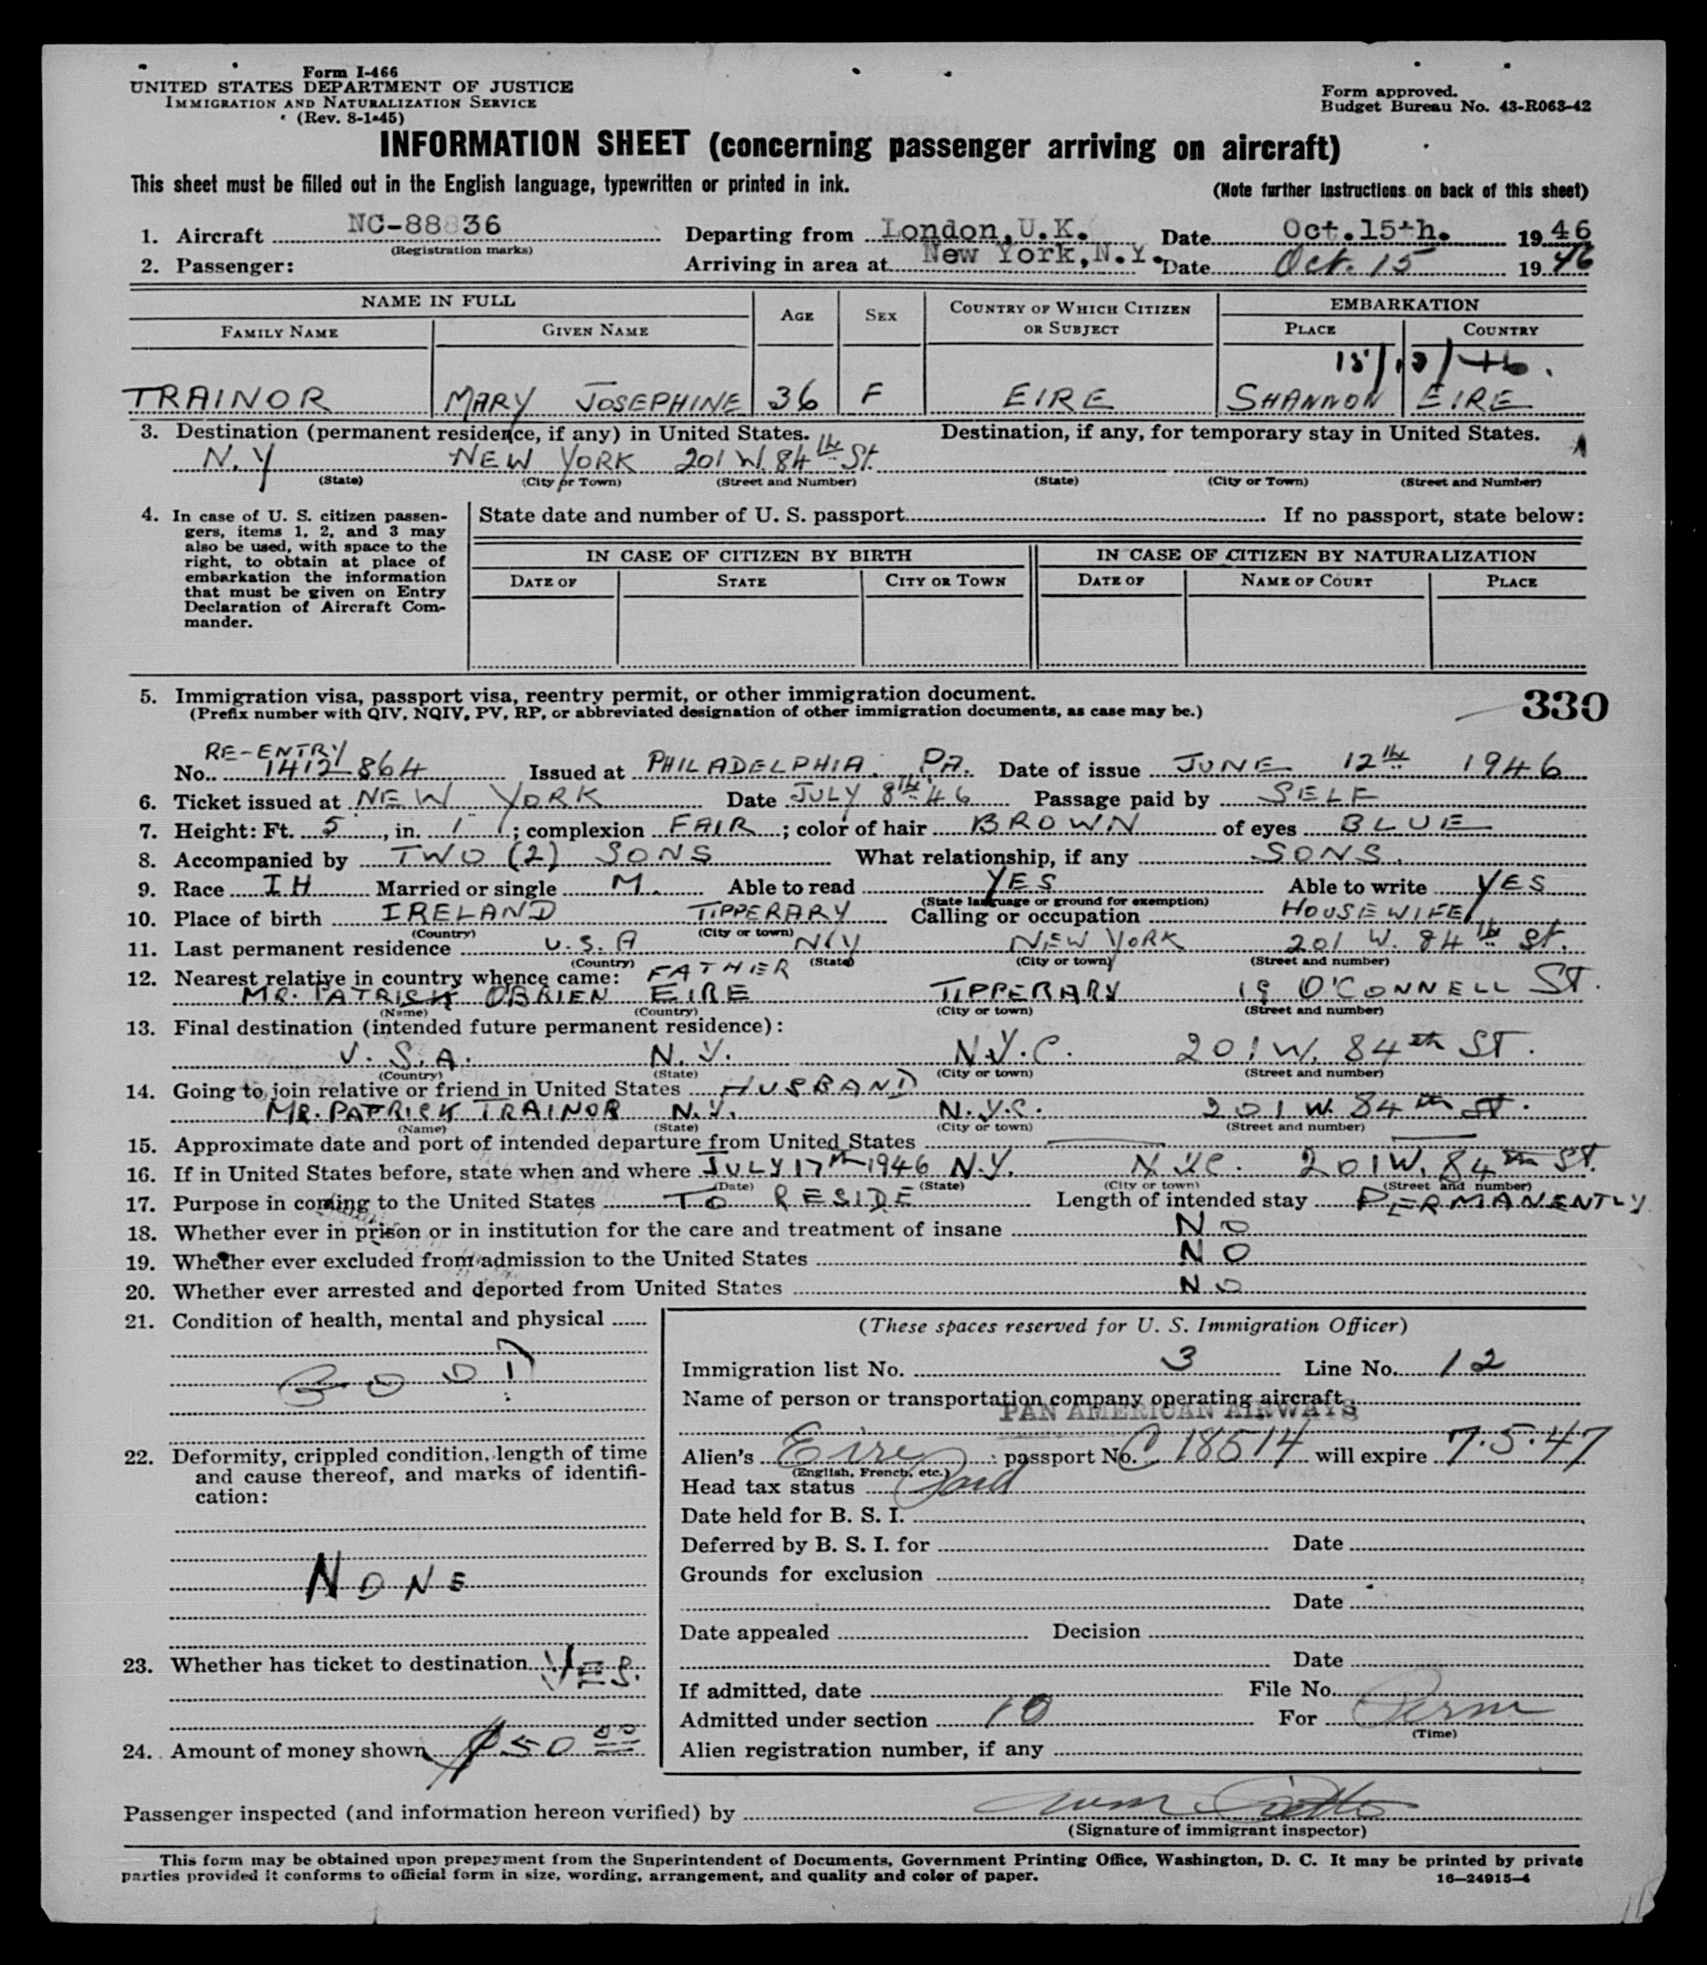 Form I-466
UNITED STATES DEPARTMENT OF JUSTICE
IMMIGRATION AND NATURALIZATION SERVICE
(Rev. 8-1-45)
Form approved.
Budget Bureau No. 43-R063-42
INFORMATION SHEET (concerning passenger arriving on aircraft)
This sheet must be filled out in the English language, typewritten or printed in ink.
(Note further instructions on back of this sheet)
1. Aircraft NC-88836 Departing from London, U.K. Date Oct. 15th. 1946
(Registration marks)
2. Passenger: Arriving in area at New York, N.Y. Date Oct. 15 1946
NAME IN FULL AGE SEX COUNTRY OF WHICH CITIZEN OR SUBJECT EMBARKATION
FAMILY NAME GIVEN NAME PLACE COUNTRY
15/10/46.
TRAINOR MARY JOSEPHINE 36 F EIRE SHANNON EIRE
3. Destination (permanent residence, if any) in United States. Destination, if any, for temporary stay in United States.
N.Y NEW YORK 201 W. 84th St.
(State) (City or Town) (Street and Number) (State) (City or Town) (Street and Number)
4. In case of U. S. citizen passengers, items 1, 2, and 3 may also be used, with space to the right, to obtain at place of embarkation the information that must be given on Entry Declaration of Aircraft Commander.
State date and number of U. S. passport If no passport, state below:
IN CASE OF CITIZEN BY BIRTH IN CASE OF CITIZEN BY NATURALIZATION
DATE OF STATE CITY OR TOWN DATE OF NAME OF COURT PLACE
5. Immigration visa, passport visa, reentry permit, or other immigration document.
(Prefix number with QIV, NQIV, PV, RP, or abbreviated designation of other immigration documents, as case may be.)
330
RE-ENTRY
No. 1412864 Issued at PHILADELPHIA. PA. Date of issue JUNE 12th 1946
6. Ticket issued at NEW YORK Date JULY 8th 46 Passage paid by SELF
7. Height: Ft. 5, in. 1; complexion FAIR; color of hair BROWN of eyes BLUE
8. Accompanied by TWO (2) SONS What relationship, if any SONS.
9. Race IH Married or single M. Able to read YES Able to write YES
(State language or ground for exemption)
10. Place of birth IRELAND TIPPERARY Calling or occupation HOUSEWIFE
(Country) (City or town)
11. Last permanent residence U.S.A N.Y NEW YORK 201 W. 84th St.
(Country) (State) (City or town) (Street and number)
12. Nearest relative in country whence came: FATHER
MR. PATRICK OBRIEN EIRE TIPPERARY 19 O'CONNELL ST.
(Name) (Country) (City or town) (Street and number)
13. Final destination (intended future permanent residence):
U.S.A. N.Y. N.Y.C. 201 W. 84th ST.
(Country) (State) (City or town) (Street and number)
14. Going to join relative or friend in United States HUSBAND
MR. PATRICK TRAINOR N.Y. N.Y.C. 201 W. 84th ST.
(Name) (State) (City or town) (Street and number)
15. Approximate date and port of intended departure from United States
16. If in United States before, state when and where JULY 17th 1946 N.Y. N.Y.C. 201 W. 84th ST.
(Date) (State) (City or town) (Street and number)
17. Purpose in coming to the United States TO RESIDE Length of intended stay PERMANENTLY
18. Whether ever in prison or in institution for the care and treatment of insane NO
19. Whether ever excluded from admission to the United States NO
20. Whether ever arrested and deported from United States NO
21. Condition of health, mental and physical
GOOD
22. Deformity, crippled condition, length of time and cause thereof, and marks of identification:
NONE
23. Whether has ticket to destination YES.
24. Amount of money shown $50.00
(These spaces reserved for U. S. Immigration Officer)
Immigration list No. 3 Line No. 12
Name of person or transportation company operating aircraft
PAN AMERICAN AIRWAYS
Alien's Eire passport No. C 18514 will expire 7.5.47
(English, French, etc.)
Head tax status Paid
Date held for B. S. I.
Deferred by B. S. I. for Date
Grounds for exclusion
Date
Date appealed Decision
Date
If admitted, date File No.
Admitted under section 10 For Perm
(Time)
Alien registration number, if any
Passenger inspected (and information hereon verified) by
(Signature of immigrant inspector)
This form may be obtained upon prepayment from the Superintendent of Documents, Government Printing Office, Washington, D. C. It may be printed by private
parties provided it conforms to official form in size, wording, arrangement, and quality and color of paper.
16—24915-4